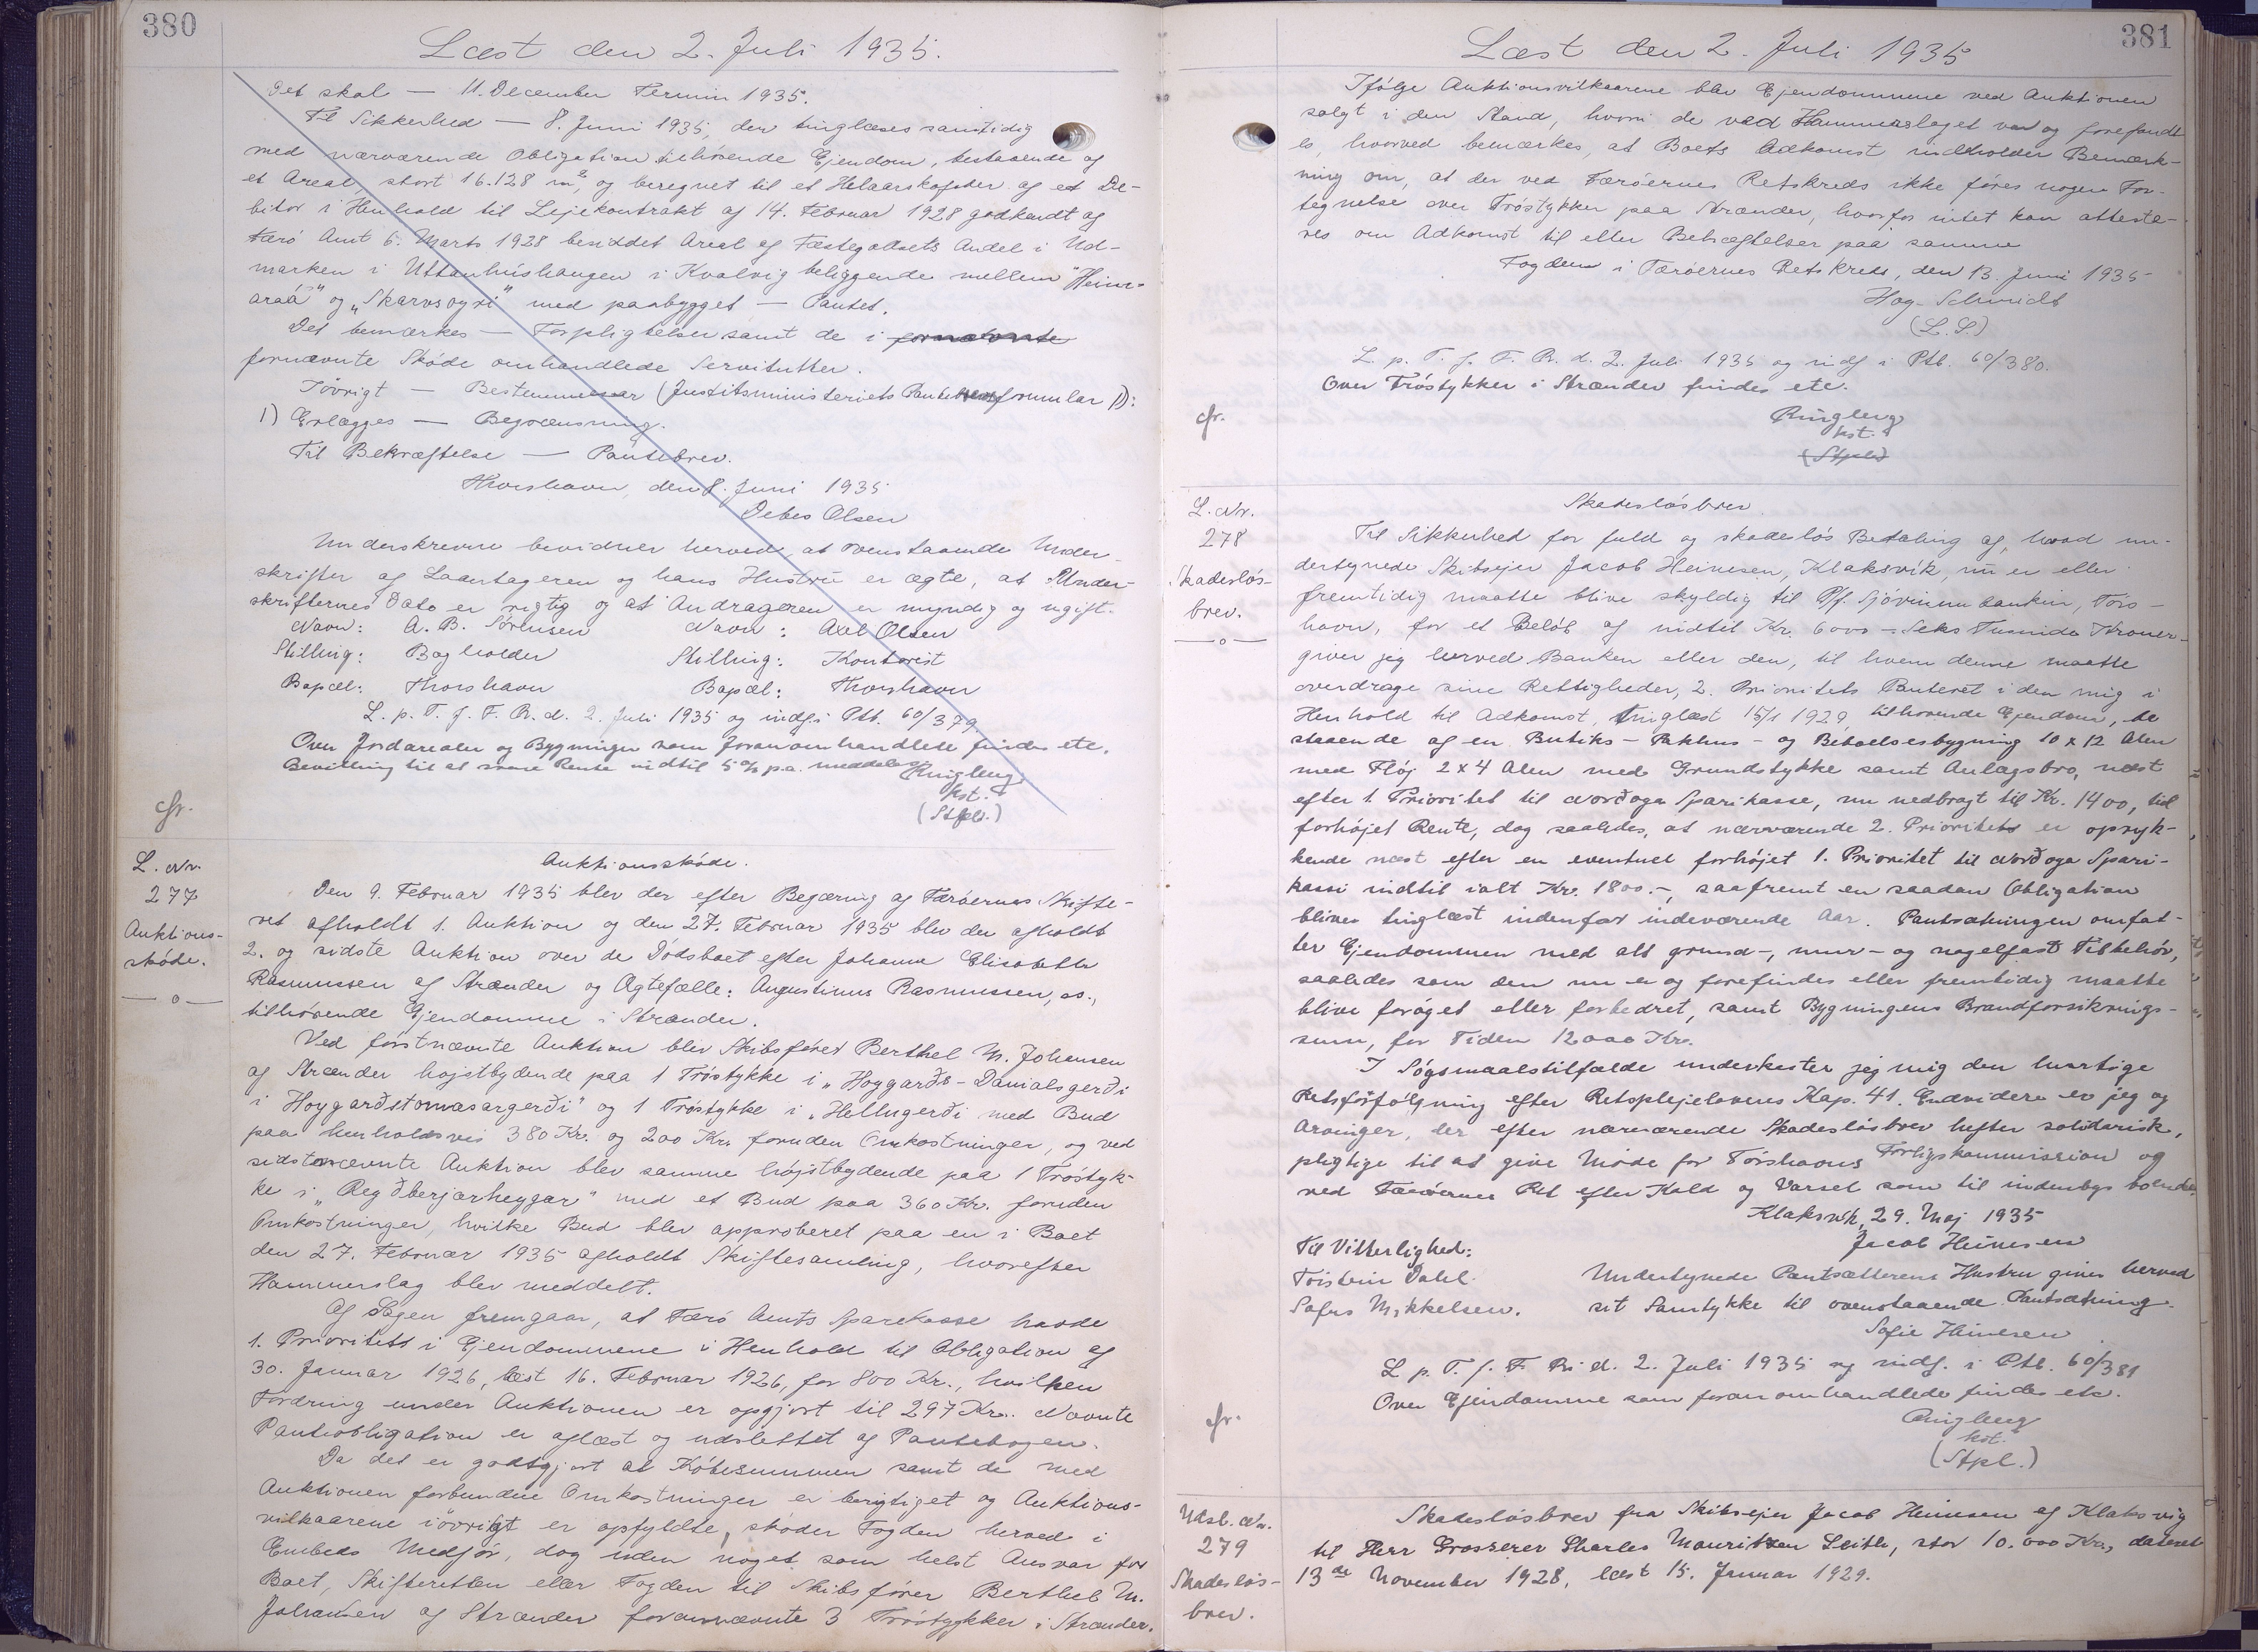 380
Læst den 2. Juli 1935.
Det skal — 11. December Termin 1935.
Til Sikkerhed — 8. Juni 1935, der tinglæses samtidig
med nærværende Obligation tilhørende Ejendom, bestaaende af
et Areal, stort 16.128 m², og beregnet til et Helaarskofoder af et De-
bitor i Henhold til Lejekontrakt af 14. Februar 1928 godkendt af
Færö Amt 6. Marts 1928 besiddet Areal af Fæstegodsets Andel i Ud-
marken i Uttanhúshaugen i Kvalvig beliggende mellem "Heim-
araá" og "Skarvsoyri" med paabygget — Pantet.
Det bemærkes — Forpligtelser samt de i
fornævnte Skøde omhandlede Servitutter.
Iøvrigt — Bestemmelser (Justitsministeriets Pantebrevsformular 1)):
1) Erlægges — Begrænsning.
Til Bekræftelse — Pantebrev.
Thorshavn, den 8. Juni 1935
Debes Olsen
Underskrevne bevidner herved, at ovenstaaende Under-
skrifter af Laantageren og hans Hustru er ægte, at Under-
skrifternes Dato er rigtig og at Andrageren er myndig og ugift.
Navn: A. B. Sörensen Navn: Axel Olsen
Stilling: Bogholder Stilling: Kontorist
Bopæl: Thorshavn Bopæl: Thorshavn
L. p. T. f. F. R. d. 2. Juli 1935 og indf. i Ptb. 60/379.
Over Jordarealer og Bygninger som foranomhandlede findes etc.
Bevilling til at svare Rente indtil 5% p.a. meddeles.
Ringberg
kst.
(Stpl.)
cfr.
L. Nr.
277
Auktions-
skøde.
— o —
Auktionsskøde.
Den 9. Februar 1935 blev der efter Begæring af Færøernes Skifte-
ret afholdt 1. Auktion og den 27. Februar 1935 blev der afholdt
2. og sidste Auktion over de Dødsboet efter Johanne Elisabeth
Rasmussen af Strænder og Ægtefælle: Augustinus Rasmussen, ss.,
tilhørende Ejendomme i Strænder.
Ved førstnævnte Auktion blev Skibsfører Berthel M. Johansen
af Strænder højstbydende paa 1 Trøstykke i "Hoygarðs-Danialsgerði
i Hoygarðstomasargerði" og 1 Trøstykke i "Hellugerði med Bud
paa henholdsvis 380 Kr. og 200 Kr. foruden Omkostninger, og ved
sidstnævnte Auktion blev samme højstbydende paa 1 Trøstyk-
ke i "Regðberjarheyggar" med et Bud paa 360 Kr. foruden
Omkostninger, hvilke Bud blev approberet paa en i Boet
den 27. Februar 1935 afholdt Skiftesamling, hvorefter
Hammerslag blev meddelt.
Af Sagen fremgaar, at Færø Amts Sparekasse havde
1. Prioritets i Ejendommene i Henhold til Obligation af
30. Januar 1926, læst 16. Februar 1926, for 800 Kr., hvilken
Fordring under Auktionen er opgjort til 297 Kr.. Nævnte
Panteobligation er aflæst og udslettet af Pantebogen.
Da det er godtgjort at Købesummen samt de med
Auktionen forbundne Omkostninger er berigtiget og Auktions-
vilkaarene iøvrigt er opfyldte, skøder Fogden herved i
Embeds Medfør, dog uden noget som helst Ansvar for
Boet, Skifteretten eller Fogden til Skibsfører Berthel M.
Johansen af Strænder forannævnte 3 Trøstykker i Strænder.
381
Læst den 2. Juli 1935
Ifølge Auktionsvilkaarene blev Ejendommene ved Auktionen
solgt i den Stand, hvori de ved Hammerslaget var og forefandt-
es, hvorved bemærkes, at Boets Adkomst indholder Bemærk-
ning om, at der ved Færøernes Retskreds ikke føres nogen For-
tegnelse over Trøstykker paa Strænder, hvorfor intet kan attesta-
res om Adkomst til eller Behæftelser paa samme
Fogden i Færøernes Retskreds, den 13. Juni 1935
Hag-Schmidt
(L.S.)
L. p. T. f. F. R. d. 2. Juli 1935 og indf. i Ptb. 60/380.
Over Trøstykker i Strænder findes etc.
cfr.
Ringberg
kst.
(Stpl.)
L. Nr.
278
Skadesløs-
brev.
— o —
Skadesløsbrev.
Til Sikkerhed for fuld og skadesløs Betaling af, hvad un-
dertegnede Skibsejer Jacob Heinesen, Klaksvik, nu er eller
fremtidig maatte blive skyldig til P/f. Sjóvinnubankin, Tórs-
havn, for et Beløb af indtil Kr. 6000 – Seks Tusinde Kroner –
giver jeg herved Banken eller den, til hvem denne maatte
overdrage sine Rettigheder, 2. Prioritets Panteret i den mig i
Henhold til Adkomst, tinglæst 15/1 1929 tilhørende Ejendom, be
staaende af en Butiks- Pakhus- og Beboelsesbygning 10 x 12 Alen
med Fløj 2 x 4 Alen med Grundstykke samt Anlægsbro, næst
efter 1. Prioritet til Norðoya Sparikassi, nu nedbragt til Kr. 1400, til
forhøjet Rente, dog saaledes, at nærværende 2. Prioritets er opryk-
kende næst efter en eventuel forhøjet 1. Prioritet til Norðoya Spari-
kassi indtil ialt Kr. 1800.-, saafremt en saadan Obligation
bliver tinglæst indenfor indeværende Aar. Pantsætningen omfat-
ter Ejendommen med alt grund-, mur- og nagelfast Tilbehør,
saaledes som den nu er og forefindes eller fremtidig maatte
blive forøget eller forbedret, samt Bygningens Brandforsikrings-
sum, for Tiden 12000 Kr.
I Søgsmaalstilfælde underkaster jeg mig den hurtige
Retsforfølgning efter Retsplejelovens Kap. 41. Endvidere er jeg og
Arvinger, der efter nærværende Skadesløsbrev hefter solidarisk,
pligtige til at give Møde for Tórshavns Forligskommission og
ved Færøernes Ret efter Kald og Varsel som til indenbys boende.
Klaksvik, 29. Maj 1935
Jacob Heinesen
Til Vitterlighed:
Tórstein Dahl. Undertegnede Pantsætterens Hustru giver herved
Sofus Mikkelsen. sit Samtykke til ovenstaaende Pantsætning.
Sofie Heinesen
L. p. T. f. F. R. d. 2. Juli 1935 og indf. i Ptb. 60/381
Over Ejendomme som foranomhandlede findes etc.
cfr.
Ringberg
kst.
(Stpl.)
Udsl. Nr.
279
Skadesløs-
brev.
Skadesløsbrev fra Skibsejer Jacob Heinesen af Klaksvig
til Herr Grosserer Charles Mauritzen Leith, stor 10.000 Kr., dateret
13de November 1928, læst 15. Januar 1929.